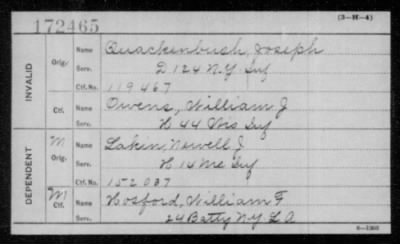 172465
(3-H-4)
INVALID
Orig. Name Quackenbush, Joseph
Serv. D 124 N.Y. Inf
Ctf. No. 119467
Ctf. Name Owens, William J
Serv. H 44 Wis Inf
DEPENDENT
M Orig. Name Lakin, Newell J
Serv. H 14 Me Inf
Ctf. No. 152037
M Ctf. Name Hosford, William F
Serv. 24 Batty N.Y. L A